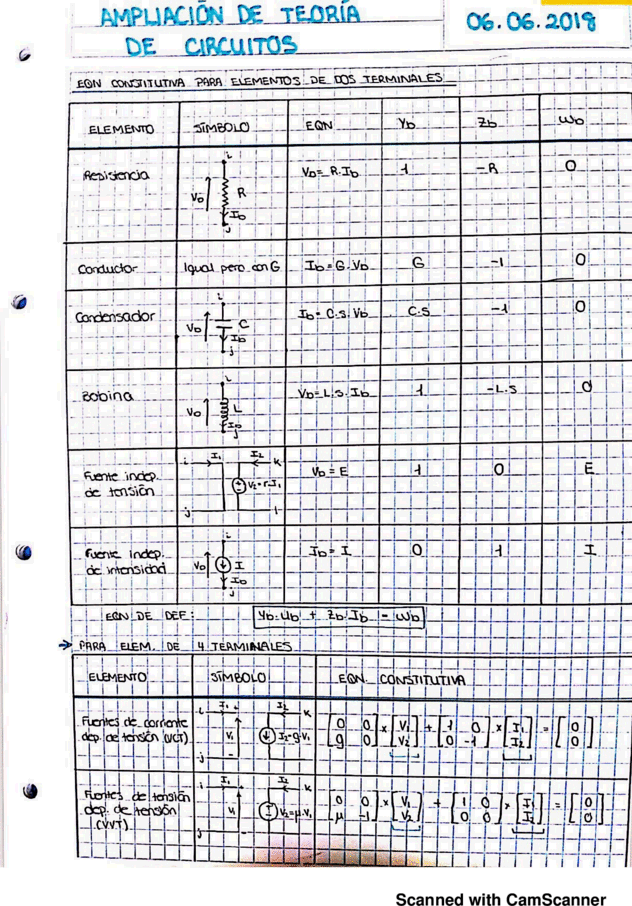 AMPLIACIÓN DE TEORÍA
DE CIRCUITOS
06.06.2019
EQN CONSTITUTIVA PARA ELEMENTOS DE DOS TERMINALES
ELEMENTO SÍMBOLO EQN Yb Zb Wb
Resistencia i Vb R Ib j Vb = R.Ib 1 -R 0
Conductor Igual pero con G Ib = G.Vb G -1 0
Condensador i Vb C Ib j Ib = C.s.Vb C.s -1 0
Bobina i Vb L Ib j Vb = L.s.Ib 1 -L.s 0
Fuente indep. de tensión i I1 I2 k V2=r.I1 j l Vb = E 1 0 E
Fuente indep. de intensidad i Vb I Ib j Ib = I 0 1 I
EQN DE DEF: Yb.Ub + Zb.Ib = Wb
→ PARA ELEM. DE 4 TERMINALES
ELEMENTO SÍMBOLO EQN. CONSTITUTIVA
Fuentes de corriente dep. de tensión (VCT) i I1 I2 k V1 I2=g.V1 j - l [0 0; g 0] x [V1; V2] + [1 0; 0 -1] x [I1; I2] = [0; 0]
Fuentes de tensión dep. de tensión (VVT) i I1 I2 k V1 V2=μ.V1 j l [0 0; μ -1] x [V1; V2] + [1 0; 0 0] x [I1; I2] = [0; 0]
Scanned with CamScanner